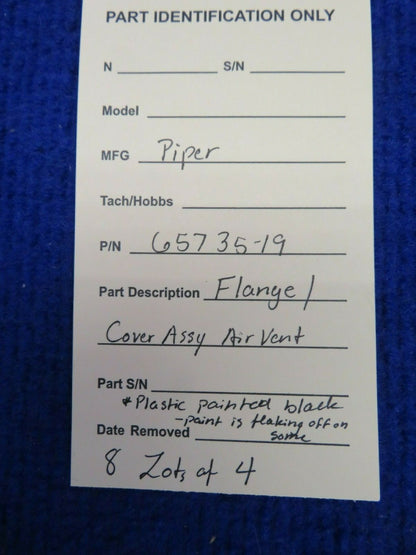 PART IDENTIFICATION ONLY
N ____ S/N ____
Model ____
MFG Piper
Tach/Hobbs ____
P/N 65735-19
Part Description Flange/
Cover Assy Air Vent
Part S/N ____
* Plastic painted black
- paint is flaking off on
Date Removed some
8 Lots of 4